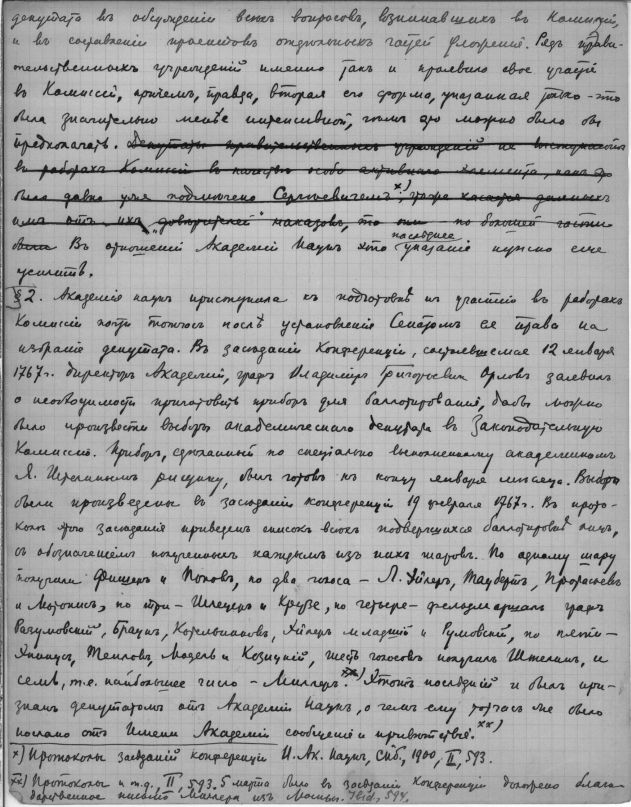 депутата въ обсужденіи всѣхъ вопросовъ, возникавшихъ въ Комиссіи,
и въ составленіи проектовъ отдѣльныхъ частей Уложенія. Рядъ прави-
тельственныхъ учрежденій именно такъ и проявило свое участіе
въ Комиссіи, причемъ, правда, вторая его форма, указанная только-что
была значительно менѣе интенсивной, чѣмъ это можно было бы
предполагать. Депутаты правительственныхъ учрежденій не выступаютъ
въ работахъ Комиссіи въ качествѣ особо активнаго элемента, какъ это
было давно уже подмѣчено Сергѣевичемъ x),
имъ отъ ихъ "довѣрителей" наказовъ, то они по большей части
были Въ отношеніи Академіи Наукъ это последнее указаніе нужно еще
усилить.
§ 2. Академія наукъ приступила къ подготовкѣ къ участію въ работахъ
Комиссіи почти тотчасъ послѣ установленія Сенатомъ ея права на
избраніе депутата. Въ засѣданіи Конференціи, состоявшемся 12 января
1767 г. директоръ Академіи, графъ Владиміръ Григорьевич Орловъ заявилъ
о необходимости приготовить приборъ для баллотированія, дабы можно
было произвести выборъ академическаго депутата въ Законодательную
Комиссію. Приборъ, сдѣланный по спеціально выполненному академикомъ
Я. Штелинымъ рисунку, былъ готовъ къ концу января мѣсяца. Выборы
были произведены въ засѣданіи конференціи 19 февраля 1767 г. Въ прото-
колѣ этого засѣданія приведенъ списокъ всѣхъ подвергшихся баллотировкѣ лицъ,
съ обозначеніемъ полученныхъ каждымъ изъ нихъ шаровъ. По одному шару
получили Фишеръ и Поповъ, по два голоса – Л. Эйлеръ, Таубертъ, Протасьевъ
и Мотонисъ, по три – Шлецеръ и Крузе, по четыре – фельдмаршалъ графъ
Разумовскій, Браунъ, Котельниковъ, Эйлеръ младшій и Румовскій, по пяти –
Эпинусъ, Тепловъ, Модель и Козицкій, шесть голосовъ получилъ Штелинъ, и
семь, т.е. наибольшее число – Миллеръ. x) Этотъ последній и былъ при-
знанъ депутатомъ отъ Академіи Наукъ, о чемъ ему тотчасъ же было
послано отъ Имени Академіи сообщеніе и привѣтствіе. xx)
x) Протоколы засѣданій конференціи И. Ак. Наукъ, СПб., 1900, II, 593.
xx) Протоколы и т.д. II, 593. 5 марта было въ засѣданіи Конференціи доложено благо-
дарственное письмо Миллера изъ Москвы. Ibid., 594.